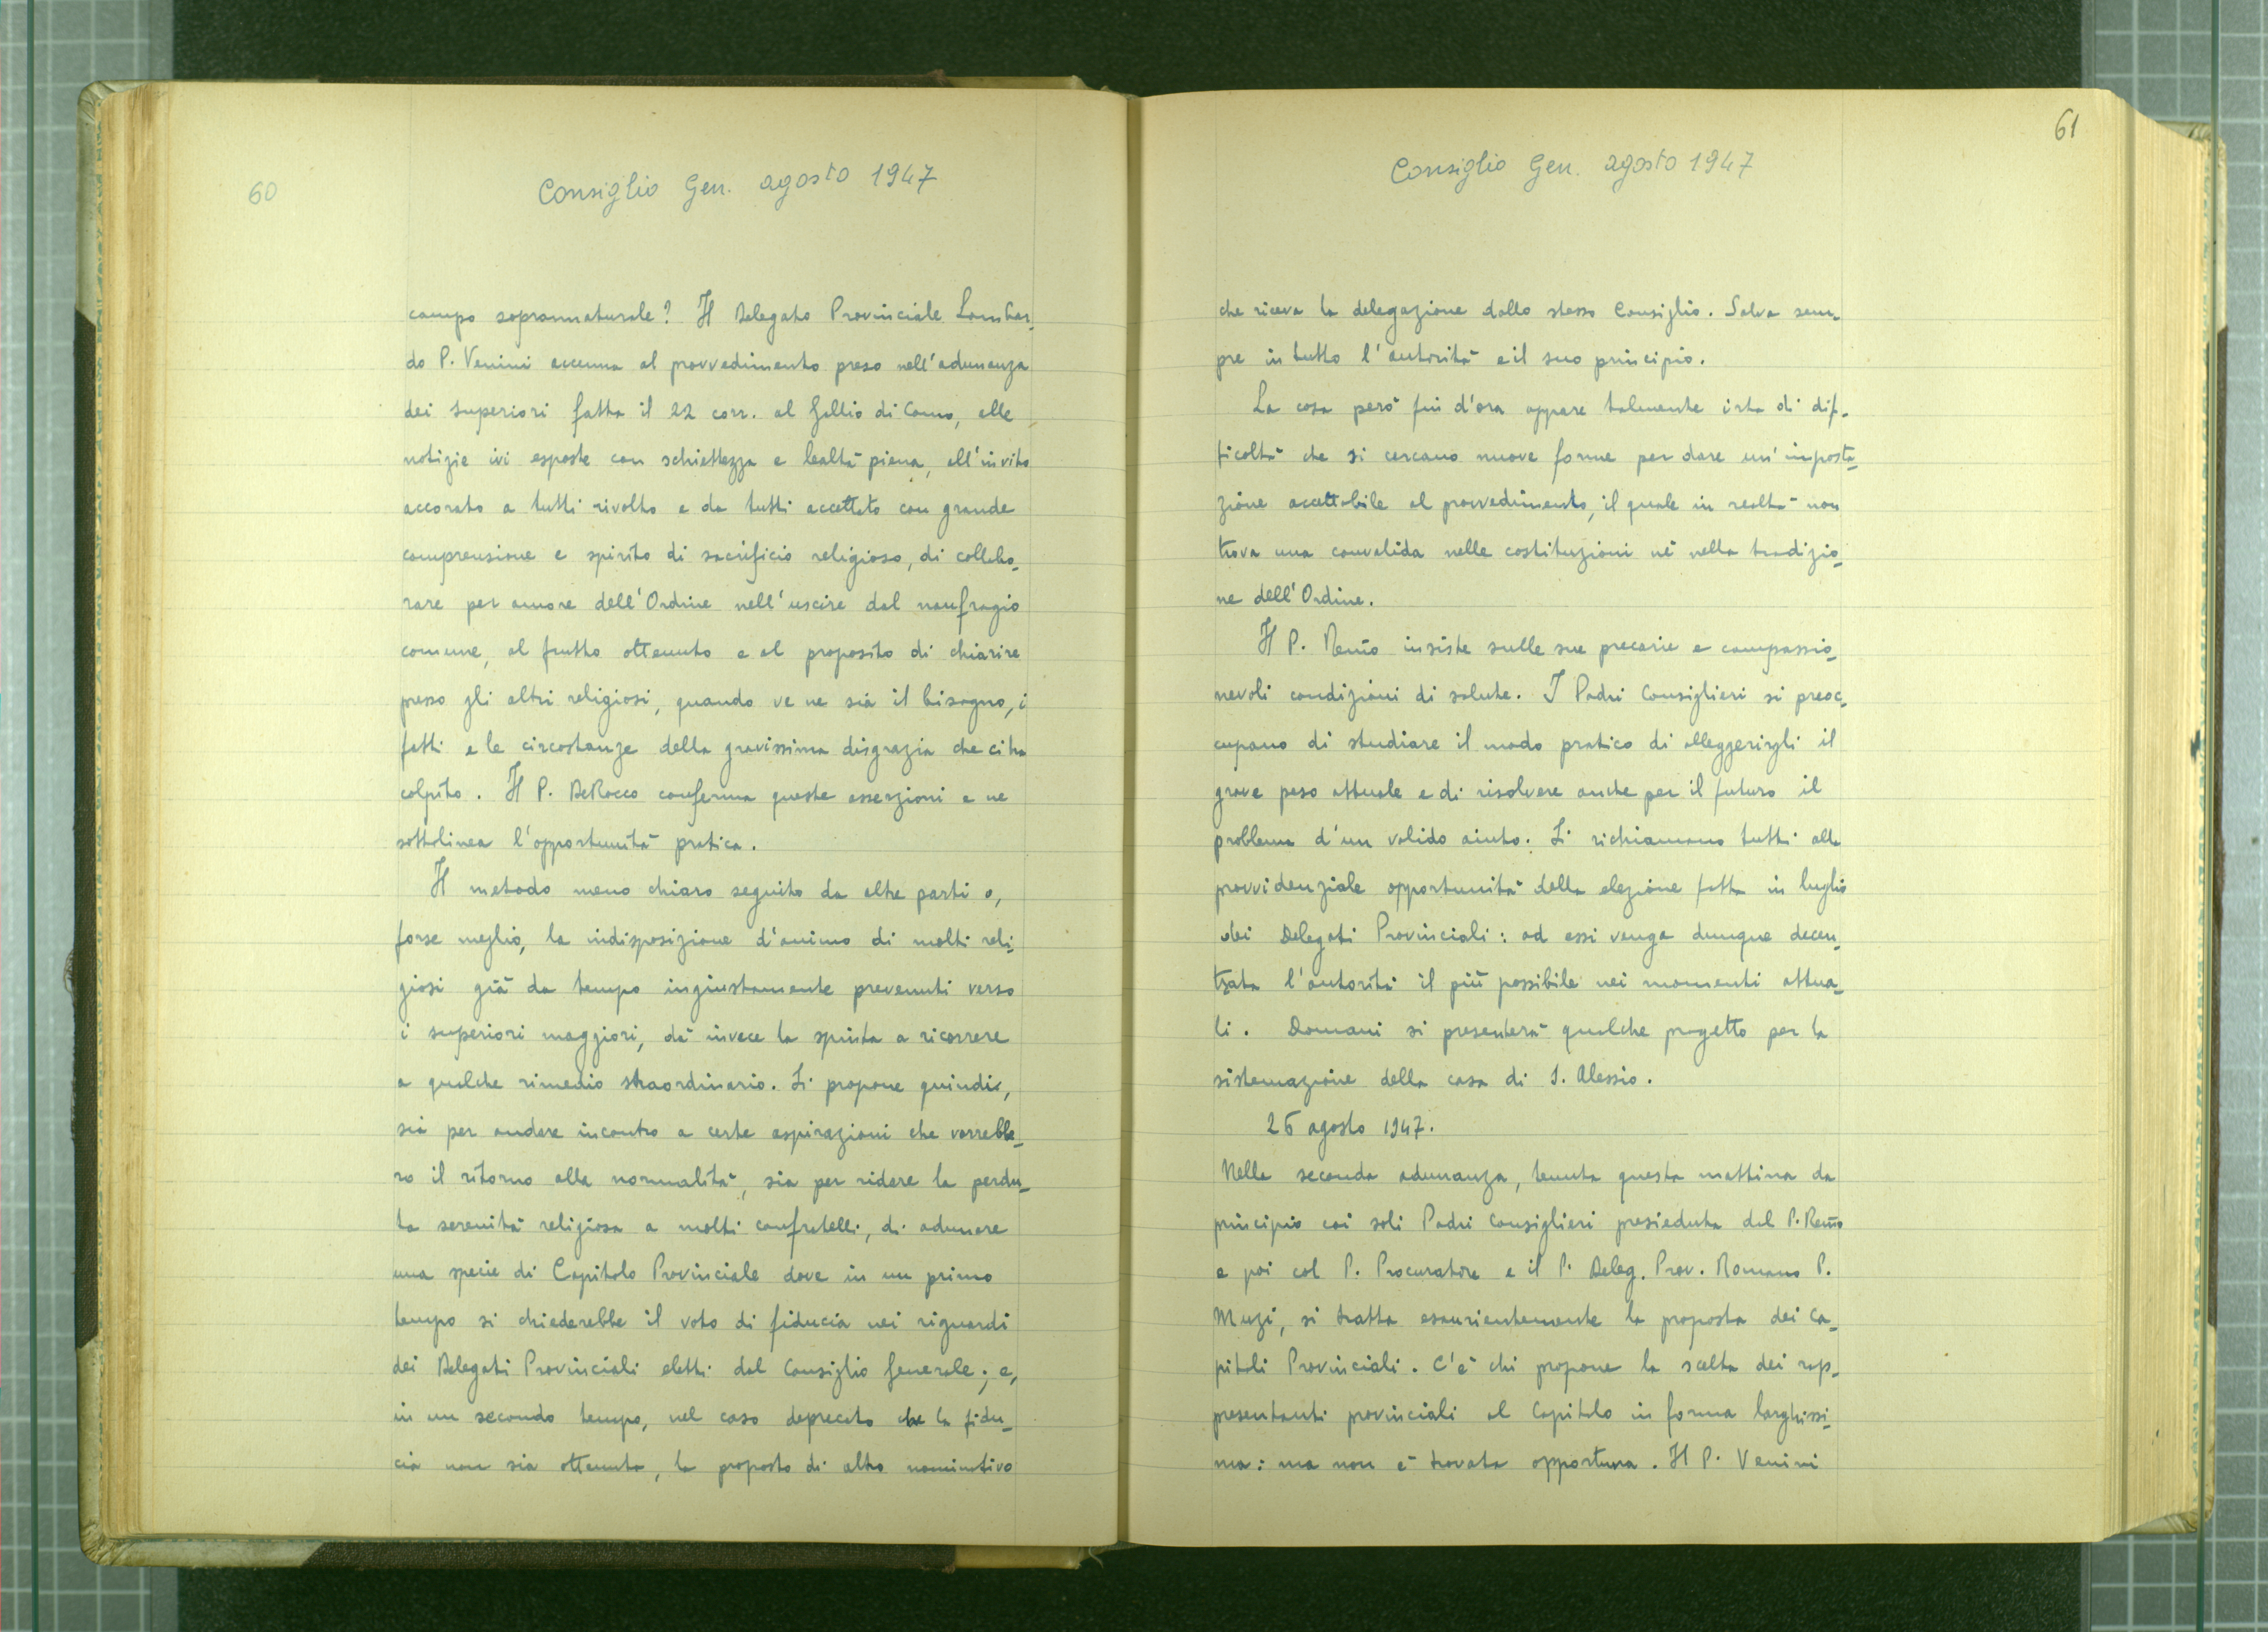 60
Consiglio Gen. agosto 1947
campo soprannaturale? Il Delegato Provinciale Lombar-
do P. Venini accenna al provvedimento preso nell'adunanza
dei Superiori fatta il 22 corr. al Gallio di Como, alle
notizie ivi esposte con schiettezza e lealtà piena, all'invito
accorato a tutti rivolto e da tutti accettato con grande
comprensione e spirito di sacrificio religioso, di collabo-
rare per amore dell'Ordine nell'uscire dal naufragio
comune, al frutto ottenuto e al proposito di chiarire
presso gli altri religiosi, quando ve ne sia il bisogno, i
fatti e le circostanze della gravissima disgrazia che ci ha
colpito. Il P. DeRocco conferma queste asserzioni e ne
sottolinea l'opportunità pratica.
Il metodo meno chiaro seguito da altre parti o,
forse meglio, la indisposizione d'animo di molti reli-
giosi già da tempo ingiustamente prevenuti verso
i superiori maggiori, dà invece la spinta a ricorrere
a qualche rimedio straordinario. Si propone quindi,
sia per andare incontro a certe aspirazioni che vorrebbe-
ro il ritorno alla normalità, sia per ridare la perdu-
ta serenità religiosa a molti confratelli, di adunare
una specie di Capitolo Provinciale dove in un primo
tempo si chiederebbe il voto di fiducia nei riguardi
dei Delegati Provinciali eletti dal Consiglio Generale; e,
in un secondo tempo, nel caso deprecato che la fidu-
cia non sia ottenuta, la proposta di altro nominativo
61
Consiglio Gen. agosto 1947
che riceva la delegazione dallo stesso Consiglio. Salva sem-
pre in tutto l'autorità e il suo principio.
La cosa però fin d'ora appare talmente irta di dif-
ficoltà che si cercano nuove forme per dare un'imposta-
zione accettabile al provvedimento, il quale in realtà non
trova una convalida nelle costituzioni nè nella tradizio-
ne dell'Ordine.
Il P. Rev̄mo insiste sulle sue precarie e compassio-
nevoli condizioni di salute. I Padri Consiglieri si preoc-
cupano di studiare il modo pratico di alleggerirgli il
grave peso attuale e di risolvere anche per il futuro il
problema d'un valido aiuto. Si richiamano tutti alla
provvidenziale opportunità della elezione fatta in luglio
dei Delegati Provinciali: ad essi venga dunque decen-
trata l'autorità il più possibile nei momenti attua-
li. Domani si presenterà qualche progetto per la
sistemazione della casa di S. Alessio.
26 agosto 1947.
Nella seconda adunanza, tenuta questa mattina da
principio coi soli Padri Consiglieri presieduta dal P. Rev̄mo
e poi col P. Procuratore e il P. Deleg. Prov. Romano P.
Muzi, si tratta esaurientemente la proposta dei Ca-
pitoli Provinciali. C'è chi propone la scelta dei rap-
presentanti provinciali al Capitolo in forma larghissi-
ma: ma non è trovata opportuna. Il P. Venini